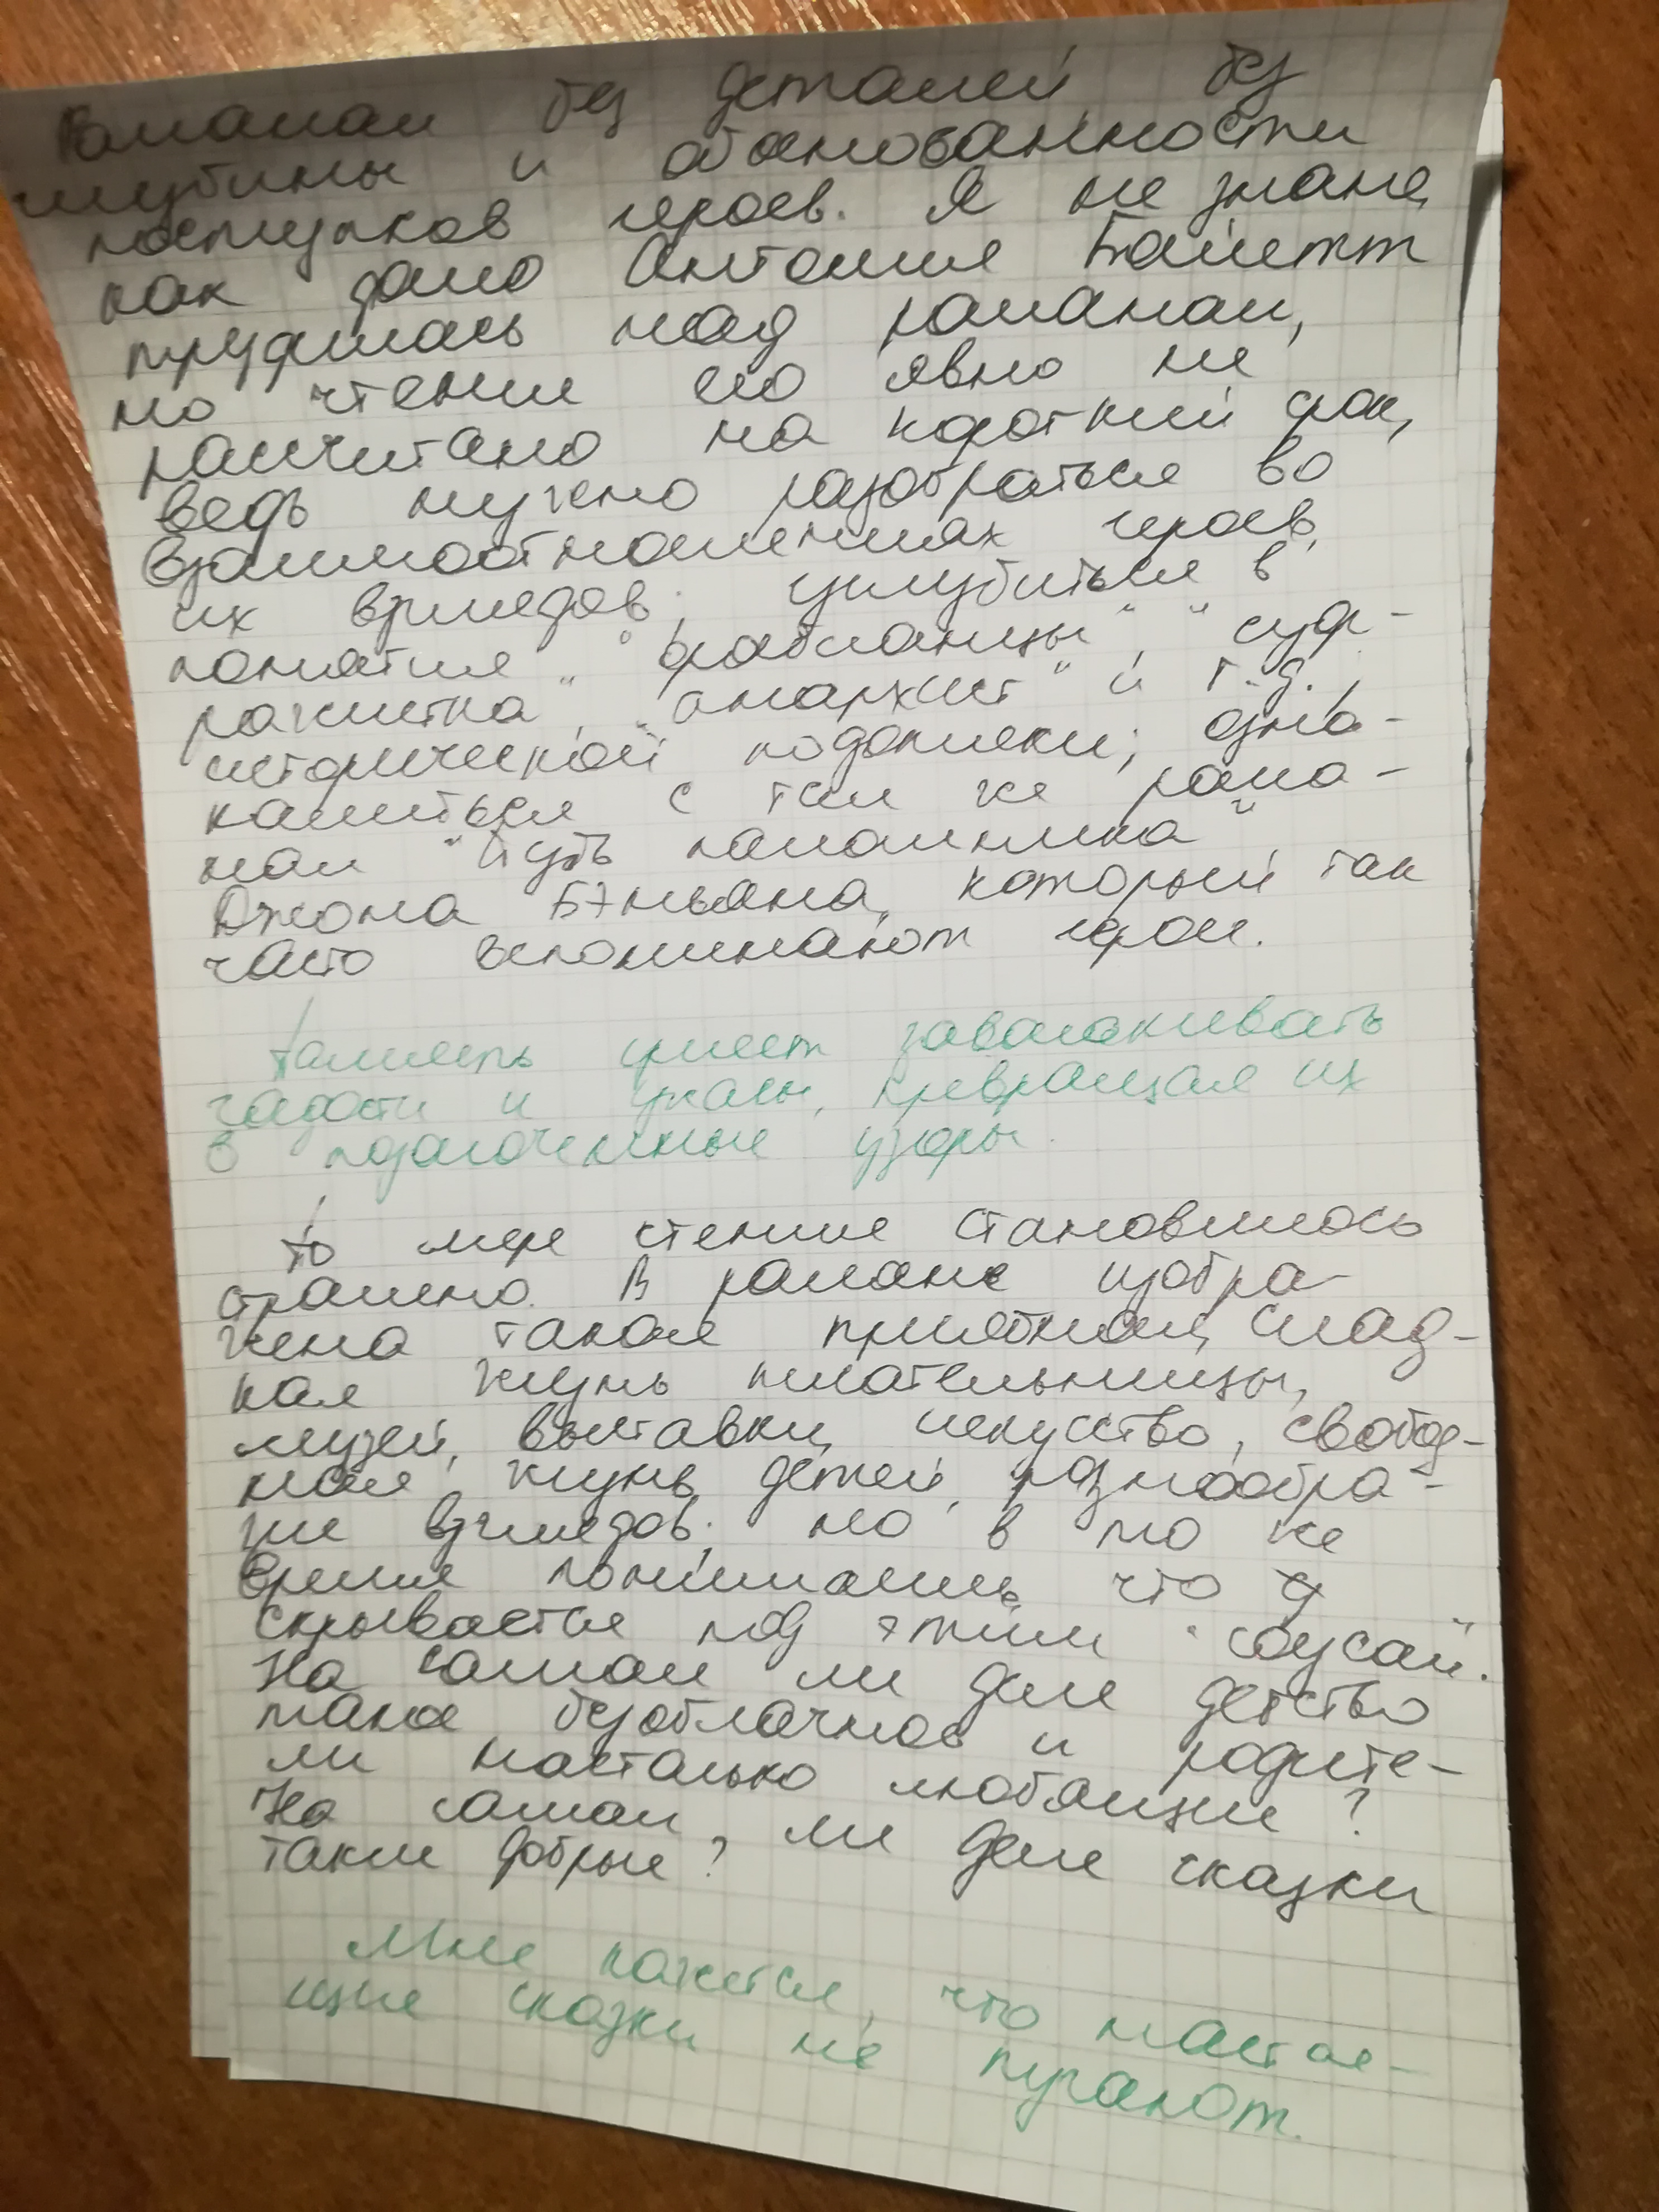 романом без деталей, без
глубины и обоснованности
поступков героев. Я не знаю,
как долго Антония Байетт
трудилась над романом,
но чтение его явно не
рассчитано на короткий срок,
ведь нужно разобраться во
взаимоотношениях героев,
их взглядов; углубиться в
понятия "фабианцы", "суф-
ражистка", "анархист" и т.д.,
исторической подоплеки; озна-
комиться с тем же рома-
ном "Путь паломника"
Джона Бэньяна, который так
часто вспоминают герои.
Память умеет заволакивать
гадости и ужасы, превращая их
в позолоченные узоры.
По мере чтения становилось
страшно. В романе изобра-
жена такая приятная, слад-
кая жизнь писательницы,
музеи, выставки, искусство, свобод-
ная жизнь детей, разнообра-
зие взглядов; но в то же
время понимаешь, что
скрывается под этим "соусом".
На самом ли деле детство
такое безоблачное и родите-
ли настолько любящие?
На самом ли деле сказки
такие добрые?
Мне кажется, что настоя-
щие сказки не пугают.